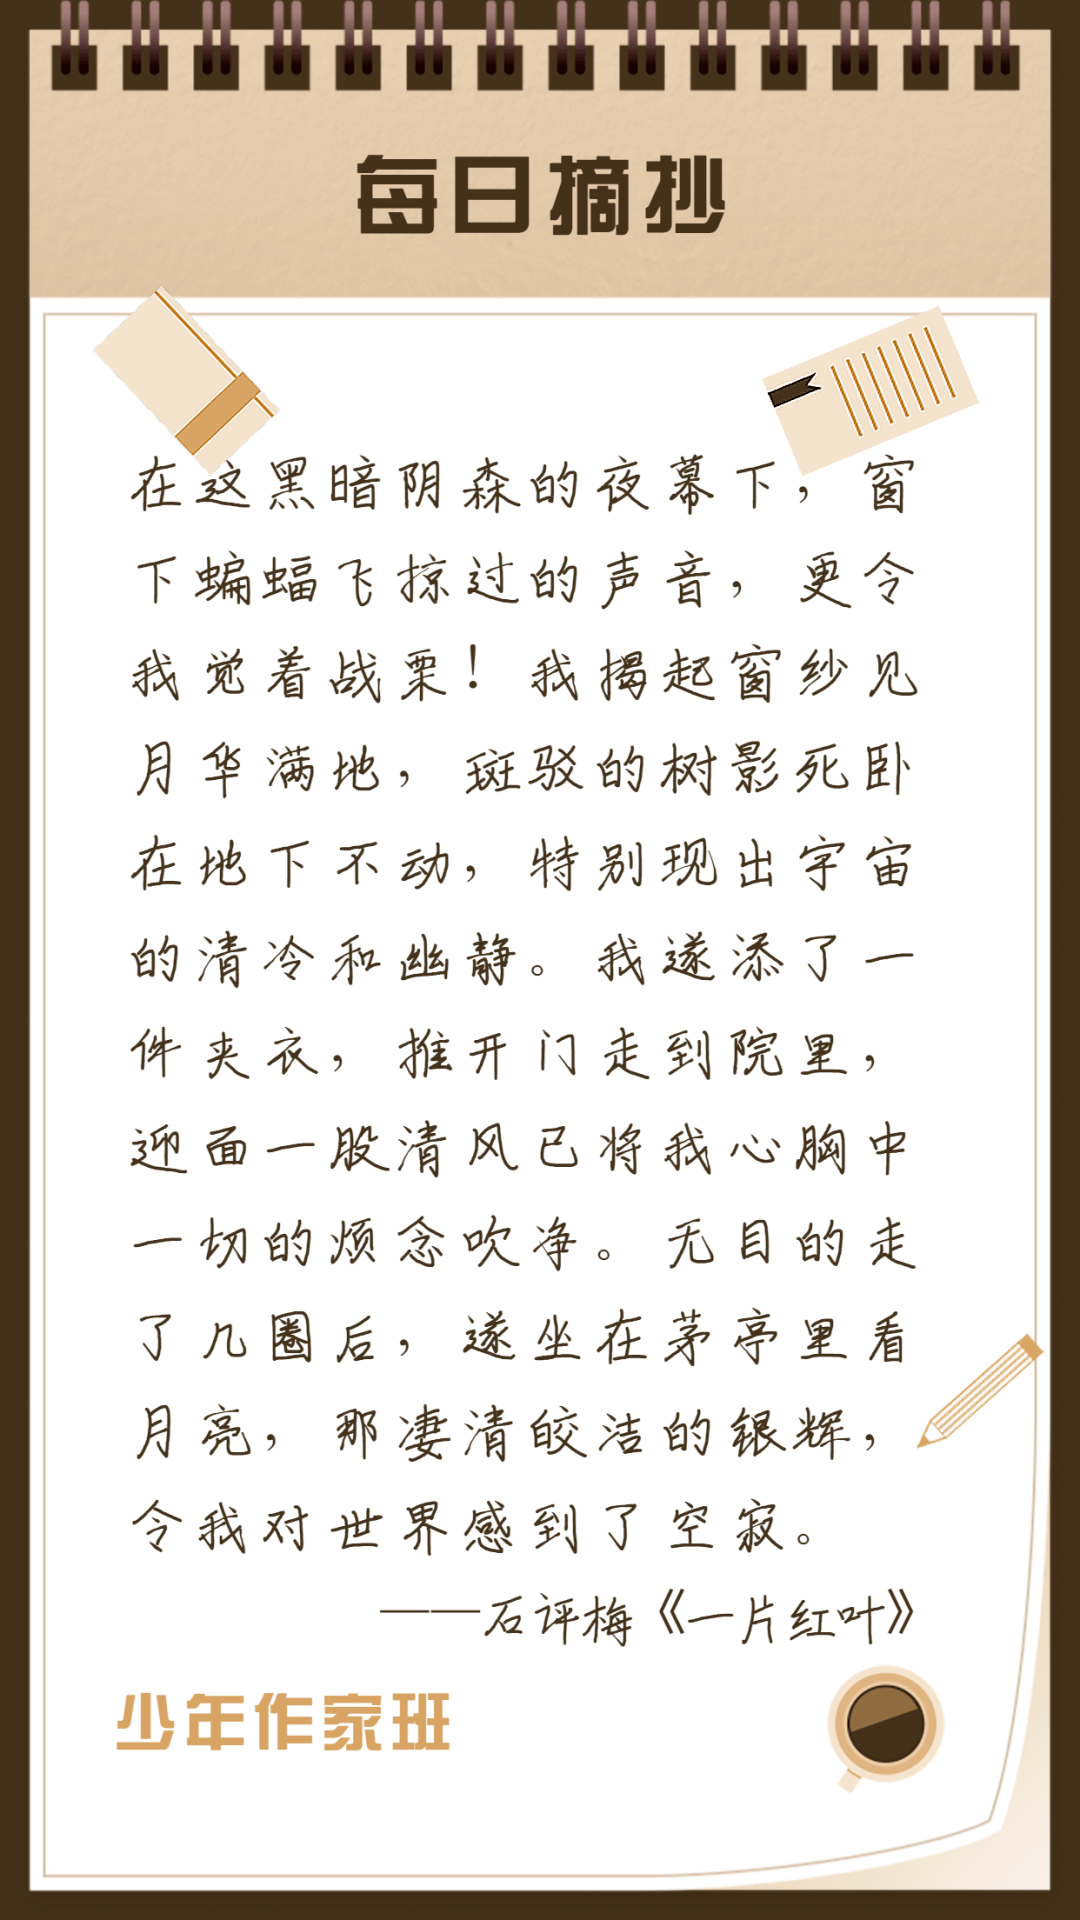 每日摘抄
在这黑暗阴森的夜幕下，窗
下蝙蝠飞掠过的声音，更令
我觉着战栗！我揭起窗纱见
月华满地，斑驳的树影死卧
在地下不动，特别现出宇宙
的清冷和幽静。我遂添了一
件夹衣，推开门走到院里，
迎面一股清风已将我心胸中
一切的烦念吹净。无目的走
了几圈后，遂坐在茅亭里看
月亮，那凄清皎洁的银辉，
令我对世界感到了空寂。
——石评梅《一片红叶》
少年作家班